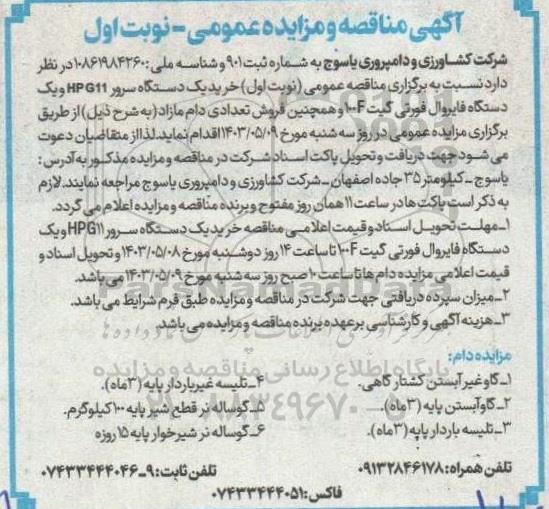 آگهی مناقصه و مزایده عمومی - نوبت اول
شرکت کشاورزی و دامپروری یاسوج به شماره ثبت ۹۰۱ و شناسه ملی: ۱۰۸۶۱۹۸۴۲۶۰ در نظر
دارد نسبت به برگزاری مناقصه عمومی (نوبت اول) خرید یک دستگاه سرور HPG11 و یک
دستگاه فایروال فورتی گیت ۱۰۰F و همچنین فروش تعدادی دام مازاد (به شرح ذیل) از طریق
برگزاری مزایده عمومی در روز سه شنبه مورخ ۱۴۰۳/۰۵/۰۹ اقدام نماید. لذا از متقاضیان دعوت
می شود جهت دریافت و تحویل پاکت اسناد شرکت در مناقصه و مزایده مذکور به آدرس:
یاسوج - کیلومتر ۳۵ جاده اصفهان - شرکت کشاورزی و دامپروری یاسوج مراجعه نمایند. لازم
به ذکر است پاکت ها در ساعت ۱۱ همان روز مفتوح و برنده مناقصه و مزایده اعلام می گردد.
۱- مهلت تحویل اسناد و قیمت اعلامی مناقصه خرید یک دستگاه سرور HPG۱۱ و یک
دستگاه فایروال فورتی گیت ۱۰۰F تا ساعت ۱۴ روز دوشنبه مورخ ۱۴۰۳/۰۵/۰۸ و تحویل اسناد و
قیمت اعلامی مزایده دام ها تا ساعت ۱۰ صبح روز سه شنبه مورخ ۱۴۰۳/۰۵/۰۹ می باشد.
۲- میزان سپرده دریافتی جهت شرکت در مناقصه و مزایده طبق فرم شرایط می باشد.
۳- هزینه آگهی و کارشناسی بر عهده برنده مناقصه و مزایده می باشد.
ParsNamadData
پایگاه اطلاع رسانی مناقصه و مزایده
مزایده دام:
۱- گاو غیر آبستن کشتار گاهی.
۲- گاو آبستن پایه (۳ماه).
۳- تلیسه باردار پایه (۳ماه).
۴- تلیسه غیرباردار پایه (۳ماه).
۵- گوساله نر قطع شیر پایه ۱۰۰ کیلوگرم.
۶- گوساله نر شیرخوار پایه ۱۵ روزه
تلفن همراه: ۰۹۱۳۲۸۴۶۱۷۸
تلفن ثابت: ۹-۰۷۴۳۳۴۴۴۰۴۶
فاکس: ۰۷۴۳۳۴۴۴۰۵۱